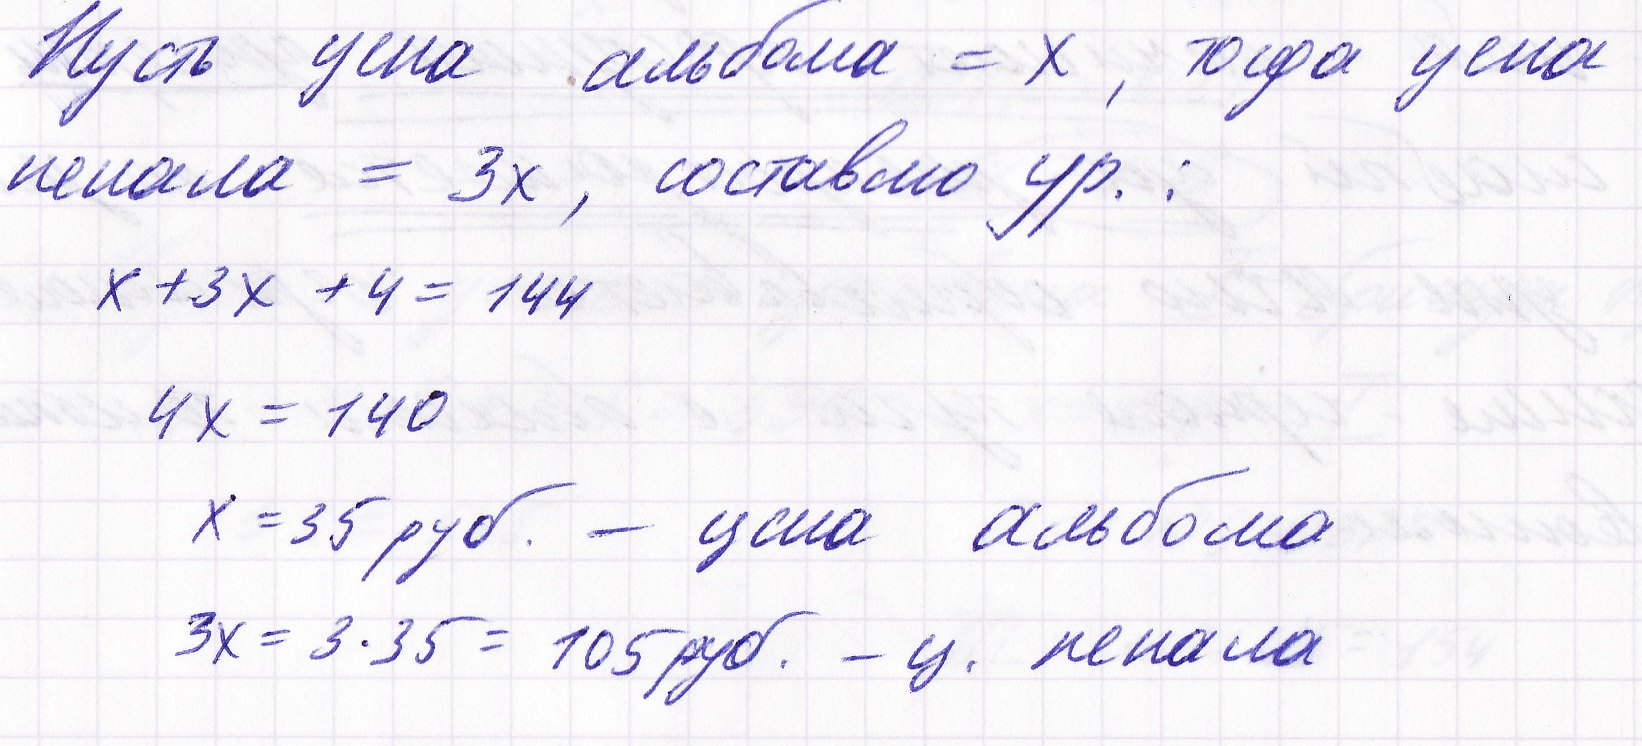 Пусть цена альбома = х, тогда цена
пенала = 3х, составлю ур. :
х + 3х + 4 = 144
4х = 140
х = 35 руб. – цена альбома
3х = 3·35 = 105 руб. – ц. пенала